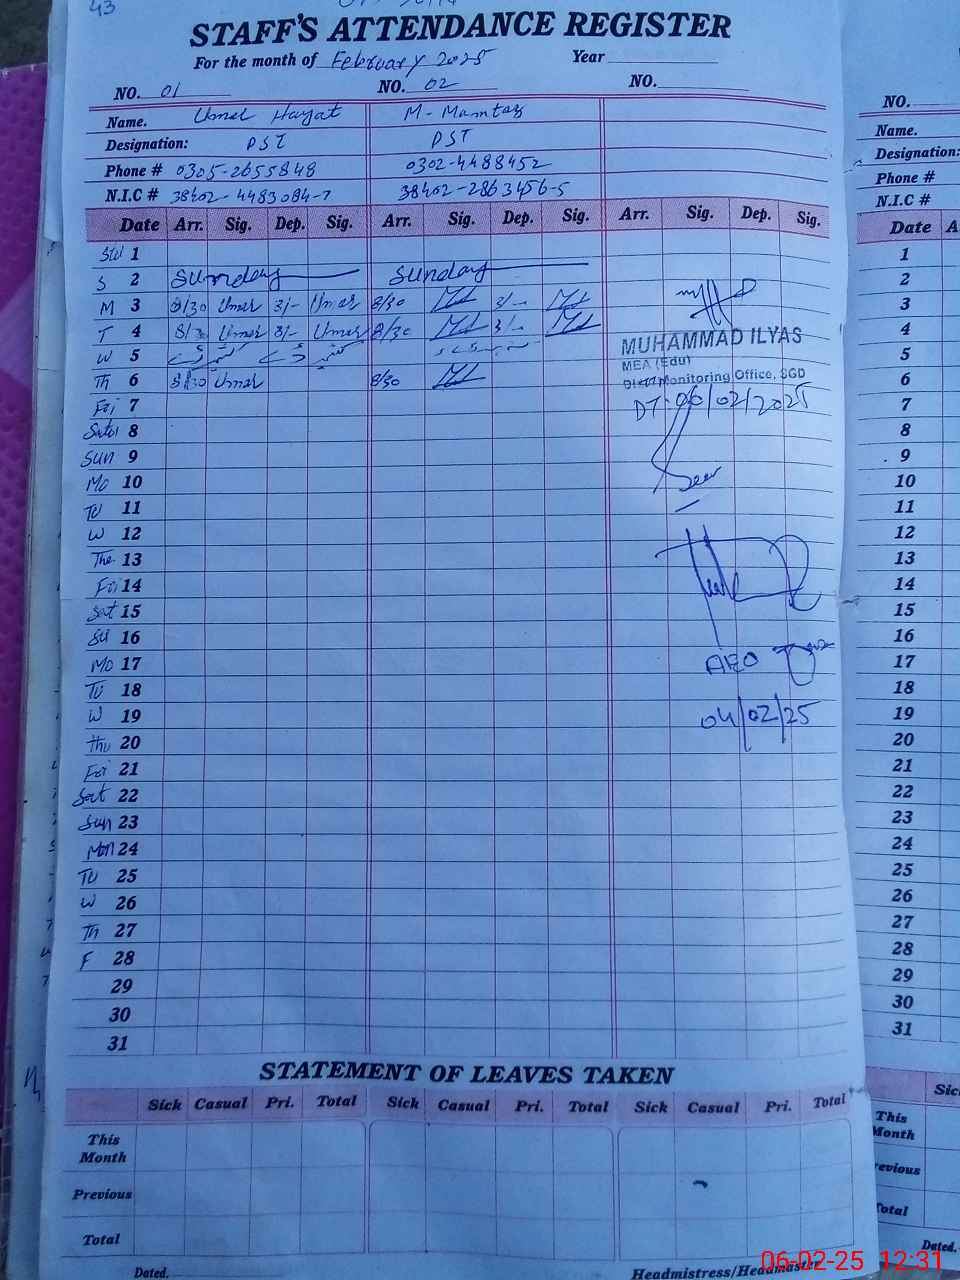 43
STAFF'S ATTENDANCE REGISTER
For the month of February 2025 Year
NO. 01 NO. 02 NO.
Name. Umer Hayat M- Mumtaz
Designation: PST PST
Phone # 0305-2655848 0302-4488452
N.I.C # 38402-4483084-7 38402-2863456-5
Date Arr. Sig. Dep. Sig. Arr. Sig. Dep. Sig. Arr. Sig. Dep. Sig.
1
S 2 Sunday Sunday
M 3 8/30 Umer 3/- Umer 8/30 3/-
T 4 8/30 Umer 3/- Umer 8/30 3/-
W 5
Th 6 8/30 Umer 8/30
Fri 7
8
Sun 9
Mo 10
TU 11
W 12
The 13
Fri 14
Sat 15
Su 16
Mo 17
TU 18
W 19
Thu 20
Fri 21
Sat 22
Sun 23
Mon 24
TU 25
W 26
Th 27
F 28
29
30
31
MUHAMMAD ILYAS
MEA (Edu)
Distt Monitoring Office, SGD
DT: 06/02/2025
Seen
AEO
04/02/25
STATEMENT OF LEAVES TAKEN
Sick Casual Pri. Total Sick Casual Pri. Total Sick Casual Pri. Total
This Month
Previous
Total
Dated. Headmistress/Headmaster
NO.
Name.
Designation:
Phone #
N.I.C #
Date
1
2
3
4
5
6
7
8
9
10
11
12
13
14
15
16
17
18
19
20
21
22
23
24
25
26
27
28
29
30
31
This
Month
Dated.
06-02-25 12:31